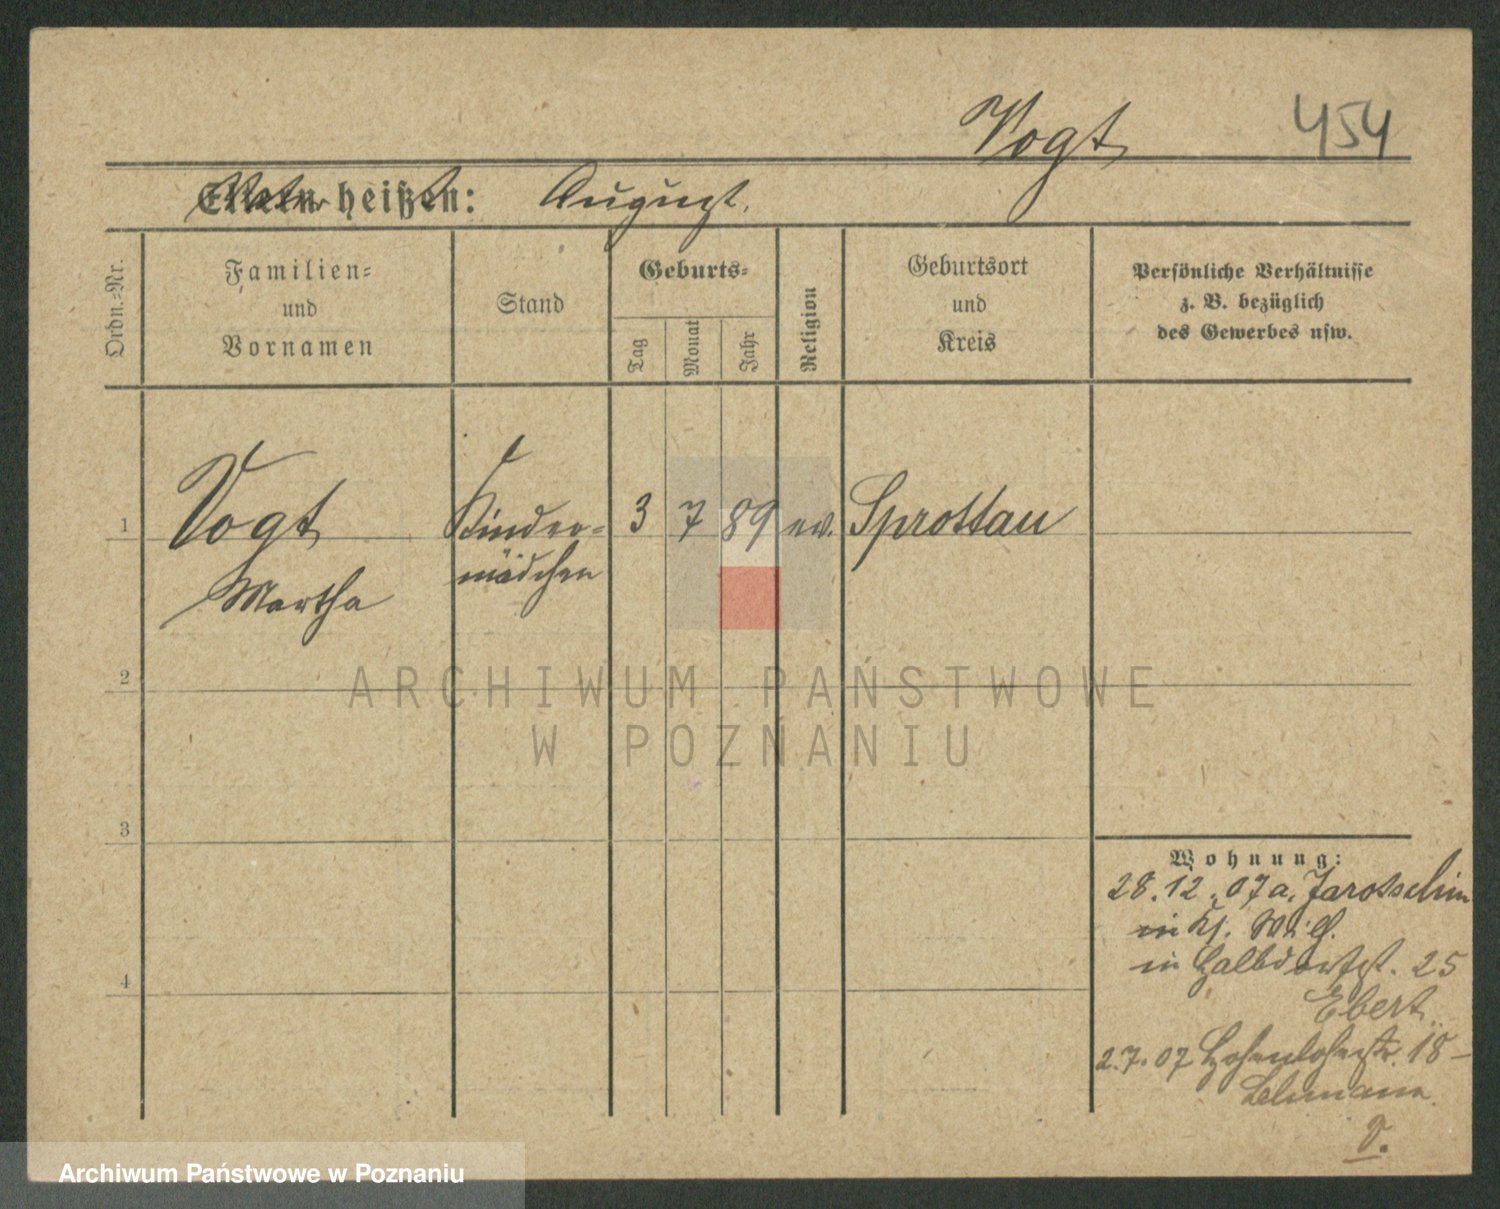 Vogt 454
Eltern heißen: August.
Ordn.-Nr.
Familien-
und
Vornamen
Stand
Geburts-
Tag
Monat
Jahr
Religion
Geburtsort
und
Kreis
Persönliche Verhältnisse
z. B. bezüglich
des Gewerbes usw.
1 Vogt Kinder- 3 7 89 ev. Sprottau
Martha mädchen
2
ARCHIWUM PAŃSTWOWE
W POZNANIU
3
4
Wohnung:
28.12.07 a. Jarotschin
in
in Halbdorfst. 25
Ebert.
2.7.07 Hohenlohestr. 18-
Lehmann.
Archiwum Państwowe w Poznaniu